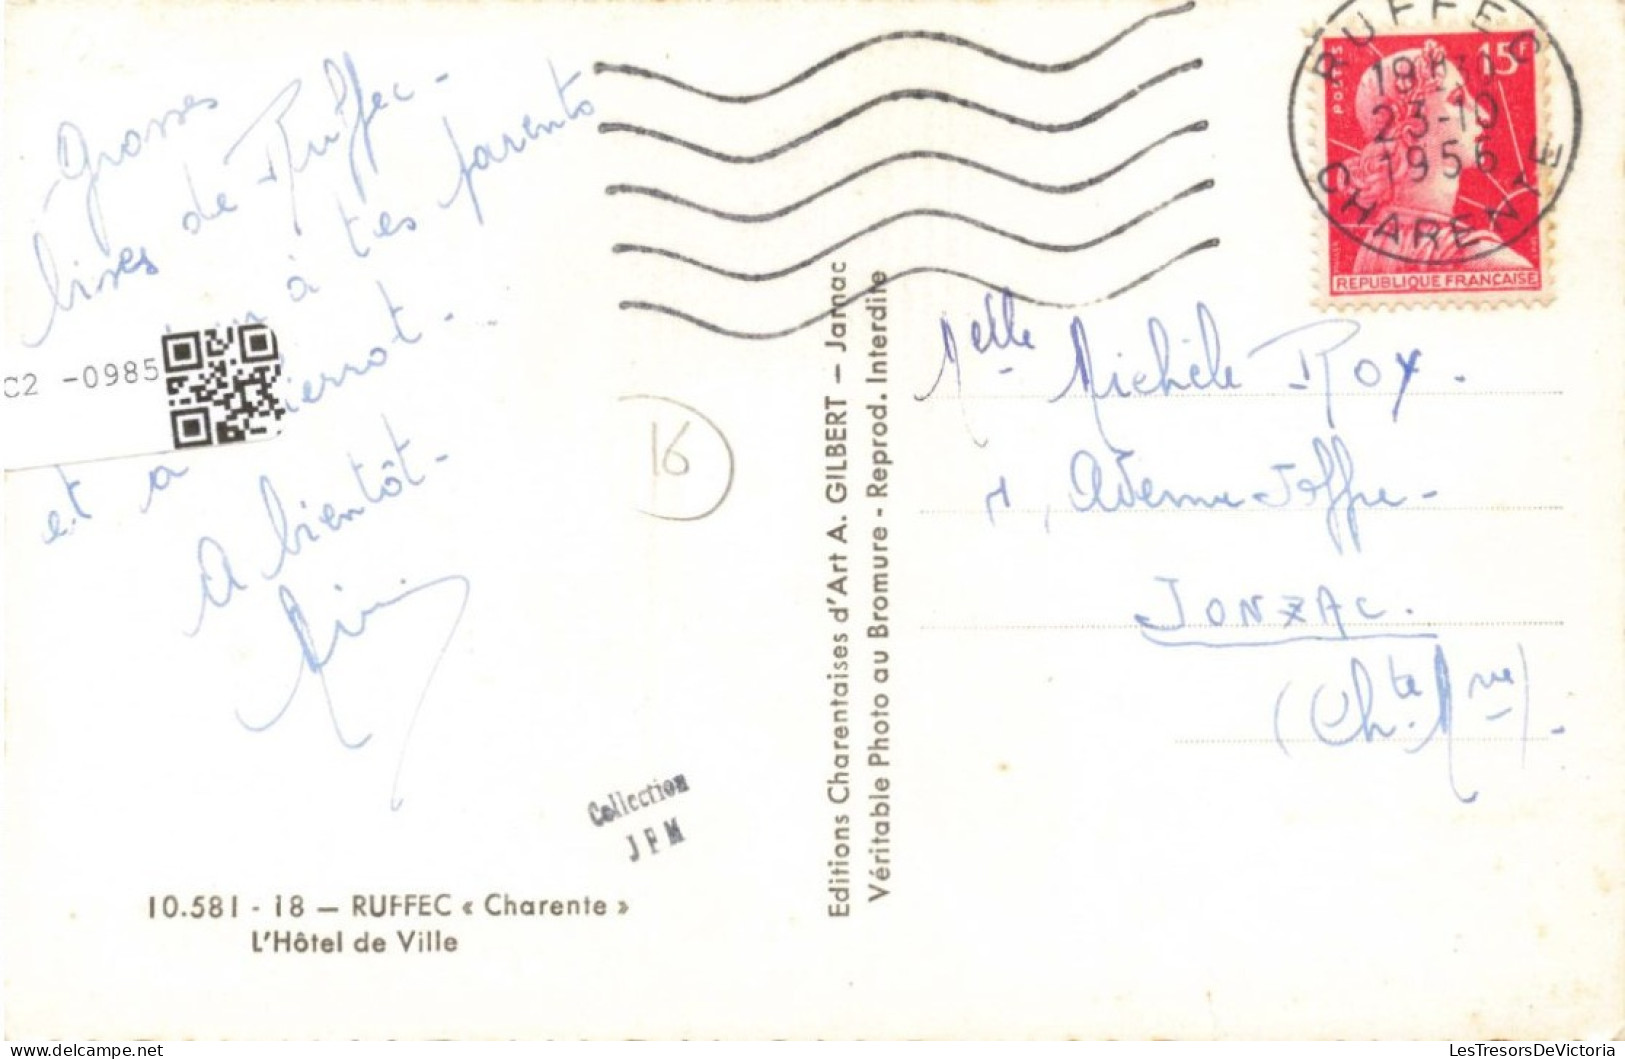 Grosses
bises de Ruffec -
à tes parents
et a Pierrot -
A bientôt -
C2 -0985
10.581 - 18 — RUFFEC « Charente »
L'Hôtel de Ville
Collection
JFM
16
Editions Charentaises d'Art A. GILBERT — Jarnac
Véritable Photo au Bromure - Reprod. Interdite
RUFFEC
18H30
23-10
1956
CHARENTE
POSTES
15F
REPUBLIQUE FRANÇAISE
Melle Michèle ROY.
, Avenue Joffre -
JONZAC.
(Chte Mme)
LesTresorsDeVictoria